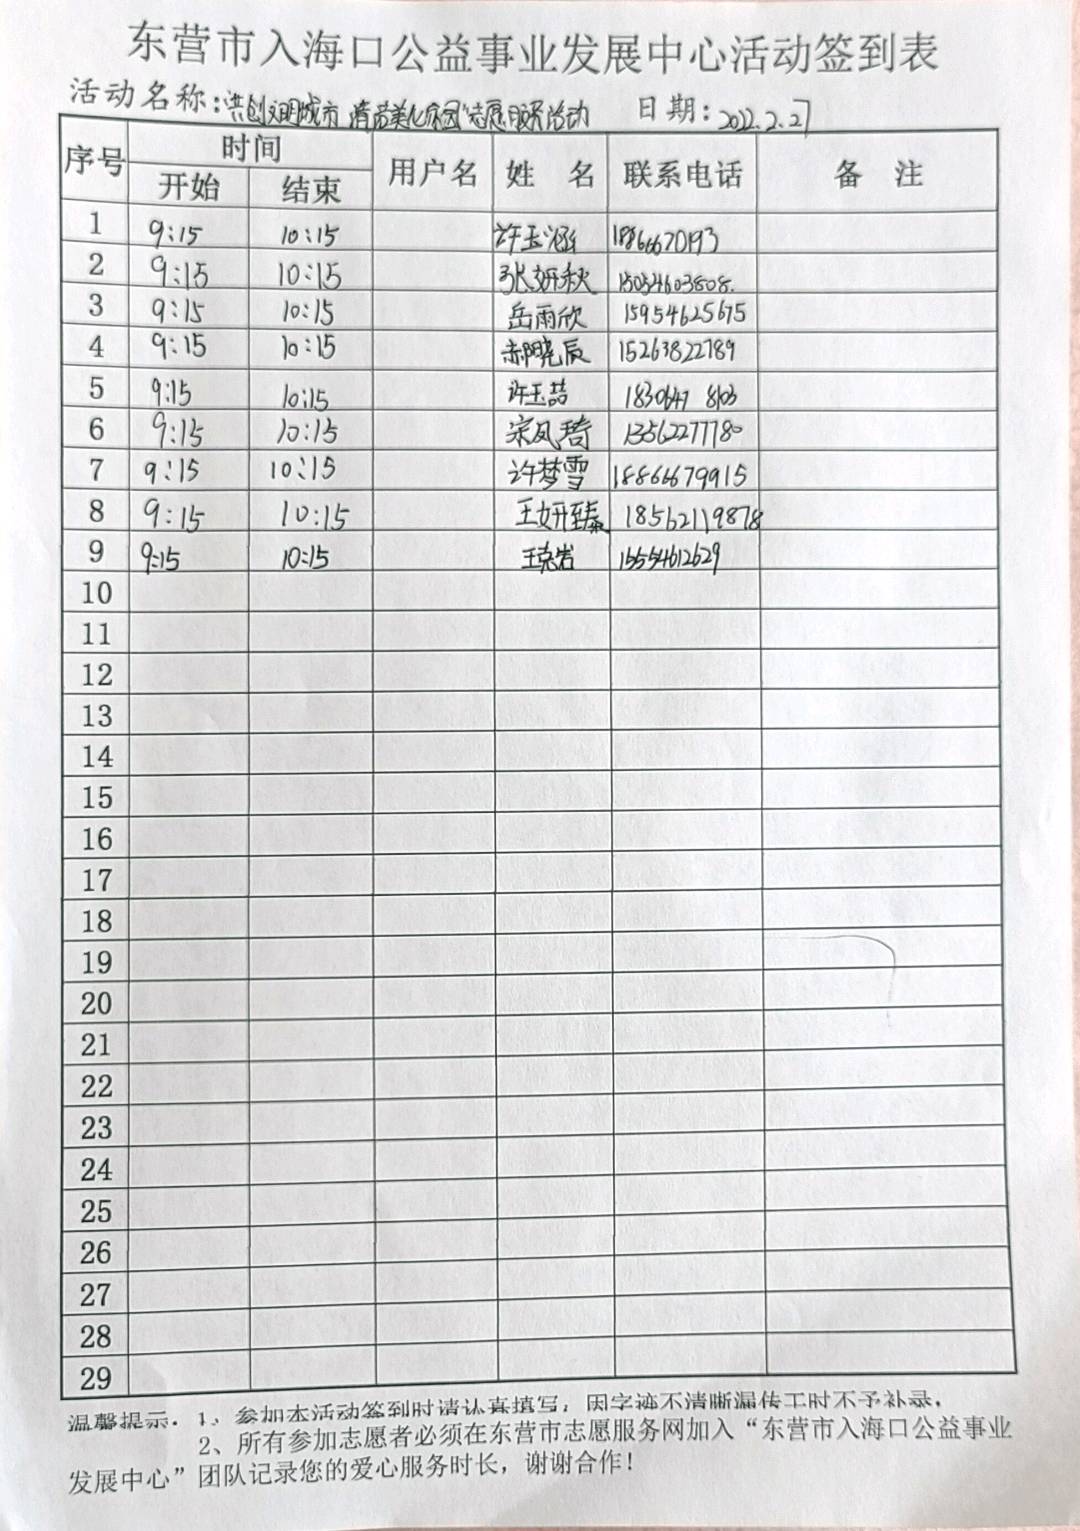 东营市入海口公益事业发展中心活动签到表
活动名称：共创文明城市 清洁美化家园"志愿服务活动 日期：2022.2.27
序号 时间 用户名 姓 名 联系电话 备 注
开始 结束
1 9:15 10:15 许玉涵 18866670193
2 9:15 10:15 张妍秋 15034603808.
3 9:15 10:15 岳雨欣 15954625675
4 9:15 10:15 郝晓辰 15263822789
5 9:15 10:15 许玉喆
6 9:15 10:15 宋凤琦 13562277780
7 9:15 10:15 许梦雪 18866679915
8 9:15 10:15 王妍臻 18562119878
9 9:15 10:15 王克岩 15554612629
10
11
12
13
14
15
16
17
18
19
20
21
22
23
24
25
26
27
28
29
温馨提示：1、参加本活动签到时请认真填写；因字迹不清晰漏传工时不予补录，
2、所有参加志愿者必须在东营市志愿服务网加入“东营市入海口公益事业
发展中心”团队记录您的爱心服务时长，谢谢合作！